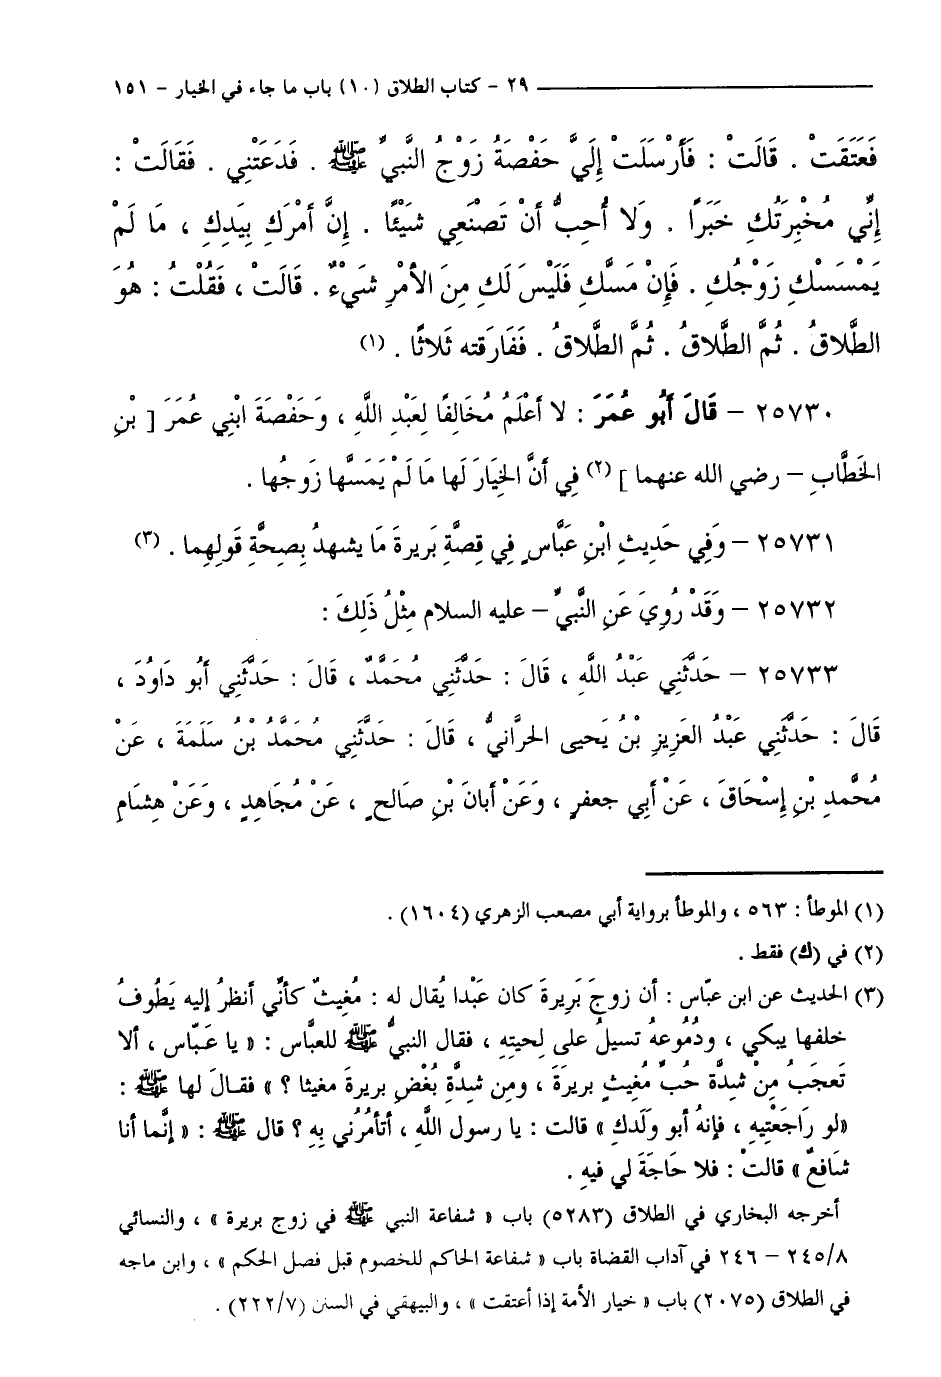 ٢٩ - كتاب الطلاق (١٠) باب ما جاء في الخيار - ١٥١
فَعَتَقَتْ . قَالَتْ : فَأَرْسَلَتْ إِلَيَّ حَفْصَةُ زَوْجُ النَّبِيِّ ﷺ . فَدَعَتْنِي . فَقَالَتْ :
إِنِّي مُخْبِرَتُكِ خَبَرًا . وَلا أُحِبُّ أَنْ تَصْنَعِي شَيْئًا . إِنَّ أَمْرَكِ بِيَدِكِ ، مَا لَمْ
يَمْسَسْكِ زَوْجُكِ . فَإِنْ مَسَّكِ فَلَيْسَ لَكِ مِنَ الأَمْرِ شَيْءٌ . قَالَتْ ، فَقُلْتُ : هُوَ
الطَّلاقُ . ثُمَّ الطَّلاقُ . ثُمَّ الطَّلاقُ . فَفَارَقته ثَلاثًا . (١)
٢٥٧٣٠ - قَالَ أَبُو عُمَرَ : لا أَعْلَمُ مُخَالِفًا لِعَبْدِ اللَّهِ ، وَحَفْصَةَ ابْنِي عُمَرَ [ بْنِ
الخَطَّابِ - رضي الله عنهما ] (٢) فِي أَنَّ الخِيَارَ لَها مَا لَمْ يَمَسَّها زَوجُها .
٢٥٧٣١ - وَفِي حَدِيثِ ابْنِ عَبَّاسٍ فِي قِصَّةِ بَرِيرةَ مَا يشهدُ بِصِحَّةِ قَولِهِما . (٣)
٢٥٧٣٢ - وَقَدْ رُوِيَ عَنِ النَّبِيِّ - عليه السلام مِثْلُ ذَلِكَ :
٢٥٧٣٣ - حَدَّثَنِي عَبْدُ اللَّهِ ، قَالَ : حَدَّثَنِي مُحَمَّدٌ ، قَالَ : حَدَّثَنِي أَبُو دَاوُدَ ،
قَالَ : حَدَّثَنِي عَبْدُ العَزِيزِ بْنُ يَحيى الحَرَّانِيُّ ، قَالَ : حَدَّثَنِي مُحَمَّدُ بْنُ سَلَمَةَ ، عَنْ
مُحَّمدِ بْنِ إِسْحَاقَ ، عَنْ أَبِي جعفرٍ ، وَعَنْ أَبانَ بْنِ صَالحٍ ، عَنْ مُجَاهِدٍ ، وَعَنْ هِشَامِ
(١) الموطأ : ٥٦٣ ، والموطأ برواية أبي مصعب الزهري (١٦٠٤) .
(٢) في (ك) فقط .
(٣) الحديث عن ابن عبّاس : أن زوجَ بَرِيرةَ كان عَبْدا يُقال له : مُغِيثٌ كأنِّي أنظرُ إليه يَطُوفُ
خلفها يبكي ، ودُمُوعهُ تسيلُ على لِحيتِهِ ، فقال النبيُّ ﷺ للعبَّاس : « يا عَبّاس ، ألا
تَعجَبُ مِنْ شِدَّة حُبِّ مُغِيثٍ بريرَةَ ، ومِن شِدَّةِ بُغْضِ بريرةَ مغيثا ؟ » فقـالَ لها ﷺ :
«لو رَاجَعْتِيهِ ، فإنهُ أبو ولَدكِ » قالت : يا رسول اللَّهِ ، أتأمُرُني بِهِ ؟ قال ﷺ : « إنَّما أنا
شافعٌ » قالتْ : فلا حَاجَةَ لي فيهِ .
أخرجه البخاري في الطلاق (٥٢٨٣) باب « شفاعة النبي ﷺ في زوج بريرة » ، والنسائي
٢٤٥/٨ - ٢٤٦ في آداب القضاة باب « شفاعة الحاكم للخصوم قبل فصل الحكم » ، وابن ماجه
في الطلاق (٢٠٧٥) باب « خيار الأمة إذا أعتقت » ، والبيهقي في السنن (٢٢٢/٧) .